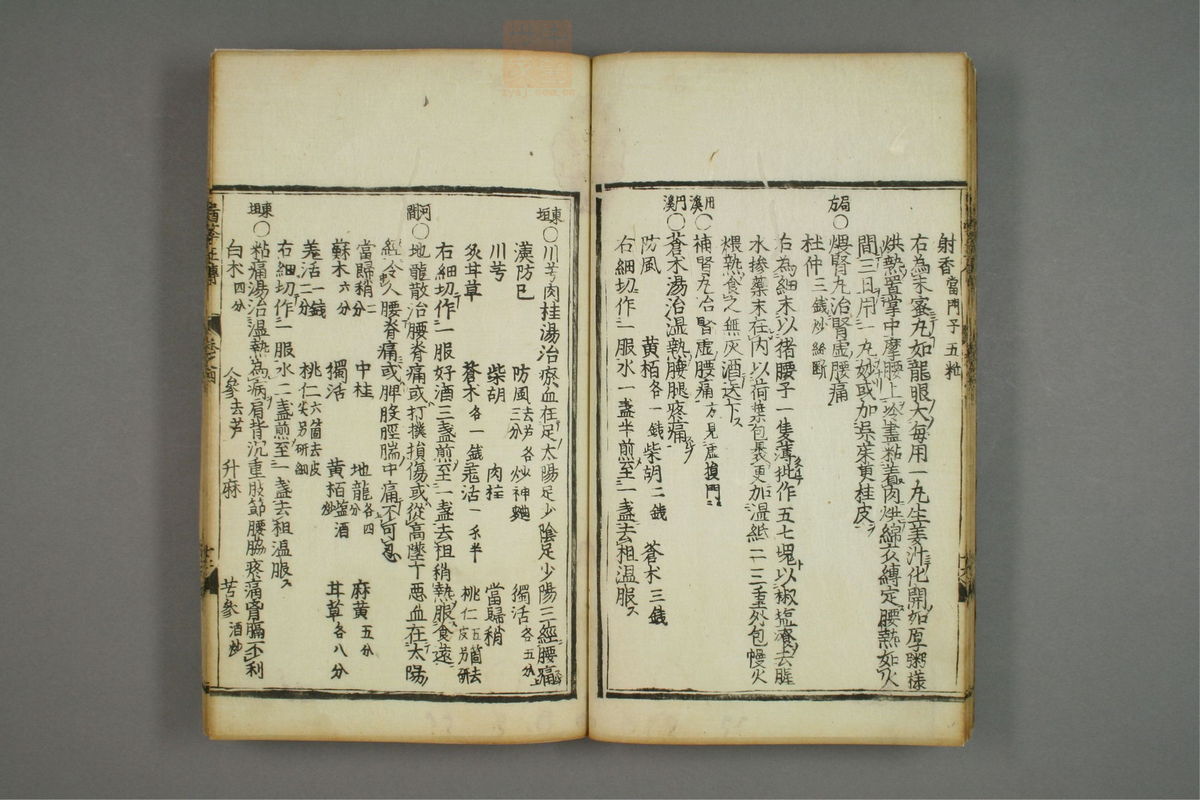 射香當門子五粒
右為末蜜丸如龍眼大每用一丸生姜汁化開如厚粥樣
烘熱置掌中摩腰上冷盡粘着肉烘綿衣縛定腰熱如火
間三日用一丸妙或加吳茱萸桂皮
局方〇煨腎丸治腎虛腰痛
杜仲三錢炒絲斷
右為細末以猪腰子一隻薄批作五七塊以椒塩淹去腥
水摻藥末在內以荷葉包裹更加温紙二三重外包慢火
煨熟食之無灰酒送下
用溪〇補腎丸治腎虛腰痛方見虛損門
門溪〇蒼木湯治温熱腰腿疼痛
防風 黄栢各一錢柴胡二錢 蒼木三錢
右細切作一服水一盞半煎至一盞去柤温服
東垣〇川芎肉桂湯治瘀血在足太陽足少陰足少陽三經腰痛
漢防巳 防風去芦三分 各炒神麯 獨活各五分
川芎 柴胡 肉桂 當歸稍
炙耳草 蒼木各一錢羗活一戔半 桃仁五箇去皮另研
右細切作一服好酒三盞煎至一盞去柤稍熱服食遠
河間〇地龍散治腰脊痛或打撲損傷或從高墜下惡血在太陽
經令人腰脊痛或脾股脛腨中痛不可忍
當歸稍二分 中桂 地龍各四分 麻黄五分
蘇木六分 獨活 黄栢塩酒炒 耳草各八分
羗活一錢二分 桃仁六箇去皮尖另研細
右細切作一服水二盞煎至一盞去柤温服
東垣〇粘痛湯治温熱為病肩背沉重肢節腰脇疼痛胷膈不利
白木四分 人參去芦 升麻 苦參酒炒